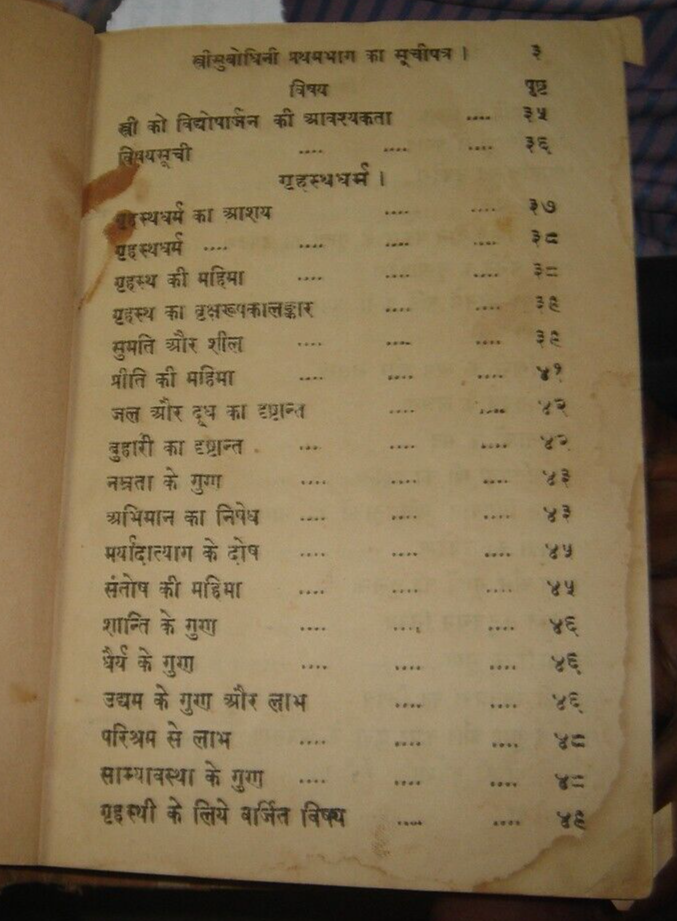 स्त्रीसुबोधिनी प्रथमभाग का सूचीपत्र । ३
विषय पृष्ट
स्त्री को विद्योपार्जन की आवश्यकता .... ३५
विषयसूची .... .... .... ३६
गृहस्थधर्म ।
गृहस्थधर्म का आशय .... .... ३७
गृहस्थधर्म .... .... .... .... ३८
गृहस्थ की महिमा .... .... .... ३८
गृहस्थ का वृक्षरूपकालङ्कार .... .... ३९
सुमति और शील .... .... .... ३९
प्रीति की महिमा .... .... .... ४१
जल और दूध का दृष्टान्त .... .... ४२
बुहारी का दृष्टान्त .... .... .... ४२
नम्रता के गुण .... .... .... ४३
अभिमान का निषेध .... .... .... ४३
मर्यादात्याग के दोष .... .... .... ४५
संतोष की महिमा .... .... .... ४५
शान्ति के गुण .... .... .... ४६
धैर्य के गुण .... .... .... ४६
उद्यम के गुण और लाभ .... .... ४६
परिश्रम से लाभ .... .... .... ४८
साम्यावस्था के गुण .... .... .... ४८
गृहस्थी के लिये वर्जित विषय .... .... ४९